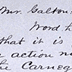 Mr. Galton
Word h
that it is
action no
the Carneg